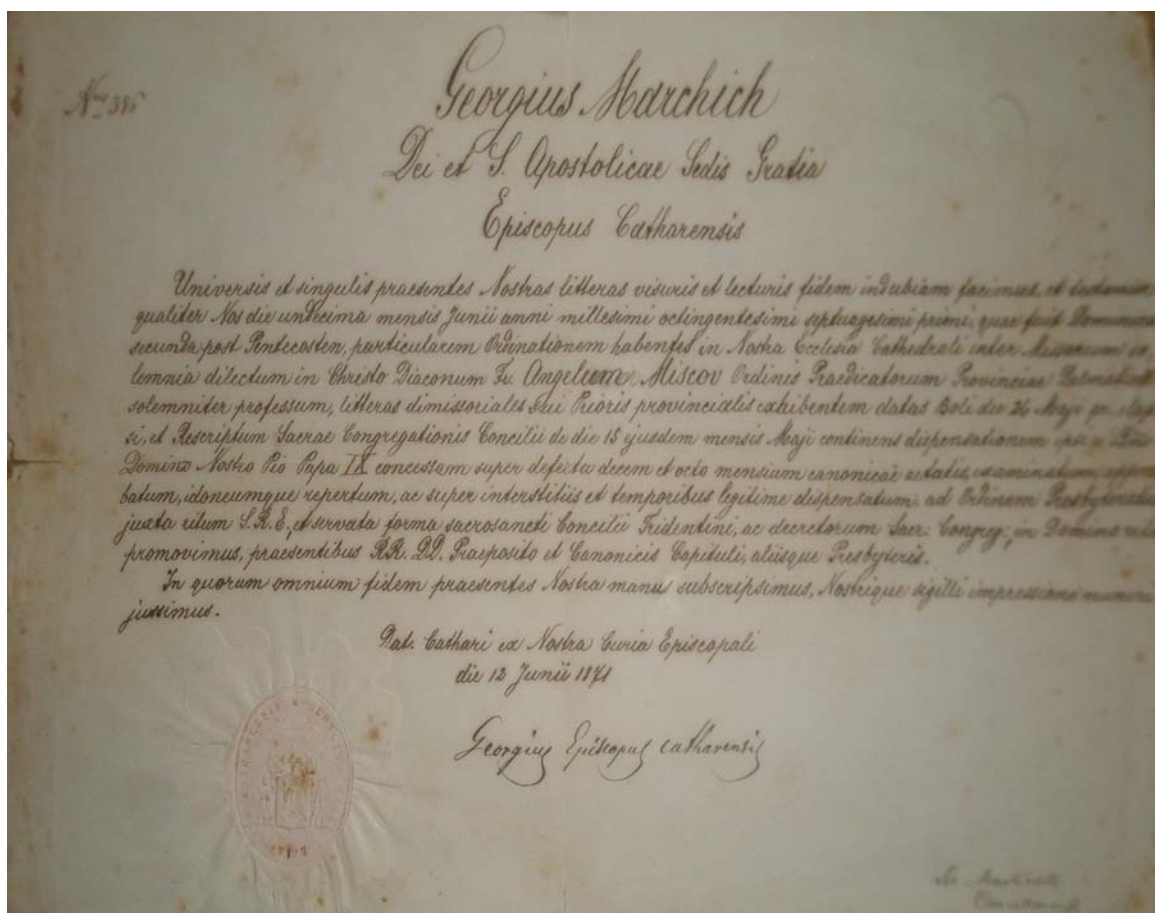 Georgius Marchich
Dei et S. Apostolicae Sedis Gratia
Episcopus Catharensis
Universis et singulis praesentes Nostras litteras visuris et lecturis fidem indubiam facimus, et testamur
qualiter Nos die undecima mensis Junii anni millesimi octingentesimi septuagesimi primi, quae fuit Dominica
secunda post Pentecosten, particularem Ordinationem habentes in Nostra Ecclesia Cathedrali inter Missarum so,
lemnia dilectum in Christo Diaconum Fr. Angelum Miscov Ordinis Praedicatorum Provinciae Dalmatiae
solemniter professum, litteras dimissoriales sui Prioris provincialis exhibentem datas Boli die 26 Maji pr. elap
si, et Rescriptum Sacrae Congregationis Concilii de die 15 ejusdem mensis Maji continens dispensationem ipsi a
Domino Nostro Pio Papa IX concessam super defectu decem et octo mensium canonicae aetatis, examinatum, appro
batum, idoneumque repertum, ac super interstitiis et temporibus legitime dispensatum, ad Ordinem Presbyteratus
juxta ritum S.R.E., et servata forma sacrosancti Concilii Tridentini, ac decretorum Sacr. Congreg., in Domino rite
promovimus, praesentibus RR. DD. Praeposito et Canonicis Capituli, aliisque Presbyteris.
In quorum omnium fidem praesentes Nostra manu subscripsimus, Nostrique sigilli impressione muniri
jussimus.
Dat. Cathari ex Nostra Curia Episcopali
die 12 Junii 1871
Georgius Episcopus Catharensis